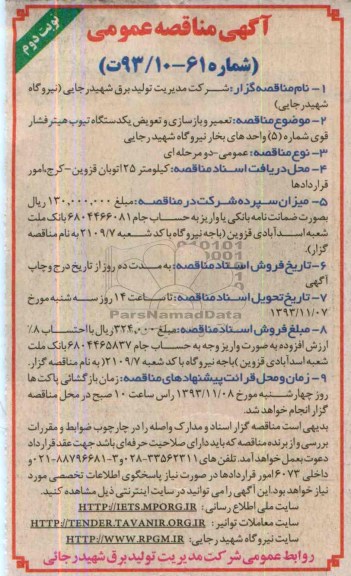 نوبت دوم
آگهی مناقصه عمومی
(شماره ۶۱-۹۳/۱۰ت)
۱- نام مناقصه گزار: شرکت مدیریت تولید برق شهید رجایی (نیروگاه
شهید رجایی)
۲- موضوع مناقصه: تعمیر و بازسازی و تعویض یکدستگاه تیوپ هیتر فشار
قوی شماره (۵) واحد های بخار نیروگاه شهید رجایی
۳- نوع مناقصه: عمومی-دو مرحله ای
۴- محل دریافت اسناد مناقصه: کیلومتر ۲۵ اتوبان قزوین-کرج، امور
قراردادها
۵- میزان سپرده شرکت در مناقصه: مبلغ ۱۳۰,۰۰۰,۰۰۰ ریال
بصورت ضمانت نامه بانکی یا واریز به حساب جام ۶۸۰۴۴۶۶۰۸۱ بانک ملت
شعبه اسدآبادی قزوین (باجه نیروگاه با کد شعبه ۲۱۰۹/۷ به نام مناقصه
گزار).
۶- تاریخ فروش اسناد مناقصه: به مدت ده روز از تاریخ درج و چاپ
آگهی
۷- تاریخ تحویل اسناد مناقصه: تا ساعت ۱۴ روز سه شنبه مورخ
۱۳۹۳/۱۱/۰۷
۸- مبلغ فروش اسناد مناقصه: ۳۲۴,۰۰۰ ریال با احتساب ۸٪
ارزش افزوده به صورت واریز وجه به حساب جام ۶۸۰۴۴۶۵۸۳۷ بانک ملت
شعبه اسدآبادی قزوین )باجه نیروگاه با کد شعبه ۲۱۰۹/۷( به نام مناقصه گزار.
۹- زمان و محل قرائت پیشنهادهای مناقصه: زمان بازگشائی پاکت ها
روز چهارشنبه مورخ ۱۳۹۳/۱۱/۰۸ راس ساعت ۱۰ صبح در محل مناقصه
گزار انجام خواهد شد.
بدیهی است مناقصه گزار اسناد و مدارک واصله را در چارچوب ضوابط و مقررات
بررسی و از برنده مناقصه که باید دارای صلاحیت حرفه ای باشد جهت عقد قرارداد
دعوت بعمل خواهد آمد. تلفن های ۳۳۵۶۲۳۱۱-۰۲۸ و ۳-۸۸۷۹۶۶۸۱-۰۲۱ و
داخلی ۶۰۷۳ امور قراردادها در صورت نیاز پاسخگوی اطلاعات تخصصی مورد
نیاز خواهد بود. این آگهی را می توانید در سایت اینترنتی ذیل مشاهده کنید.
سایت ملی اطلاع رسانی: HTTP://IETS.MPORG.IR
سایت معاملات توانیر: HTTP://TENDER.TAVANIR.ORG.IR
سایت نیروگاه شهید رجایی: HTTP://WWW.RPGM.IR
روابط عمومی شرکت مدیریت تولید برق شهید رجائی
ParsNamadData